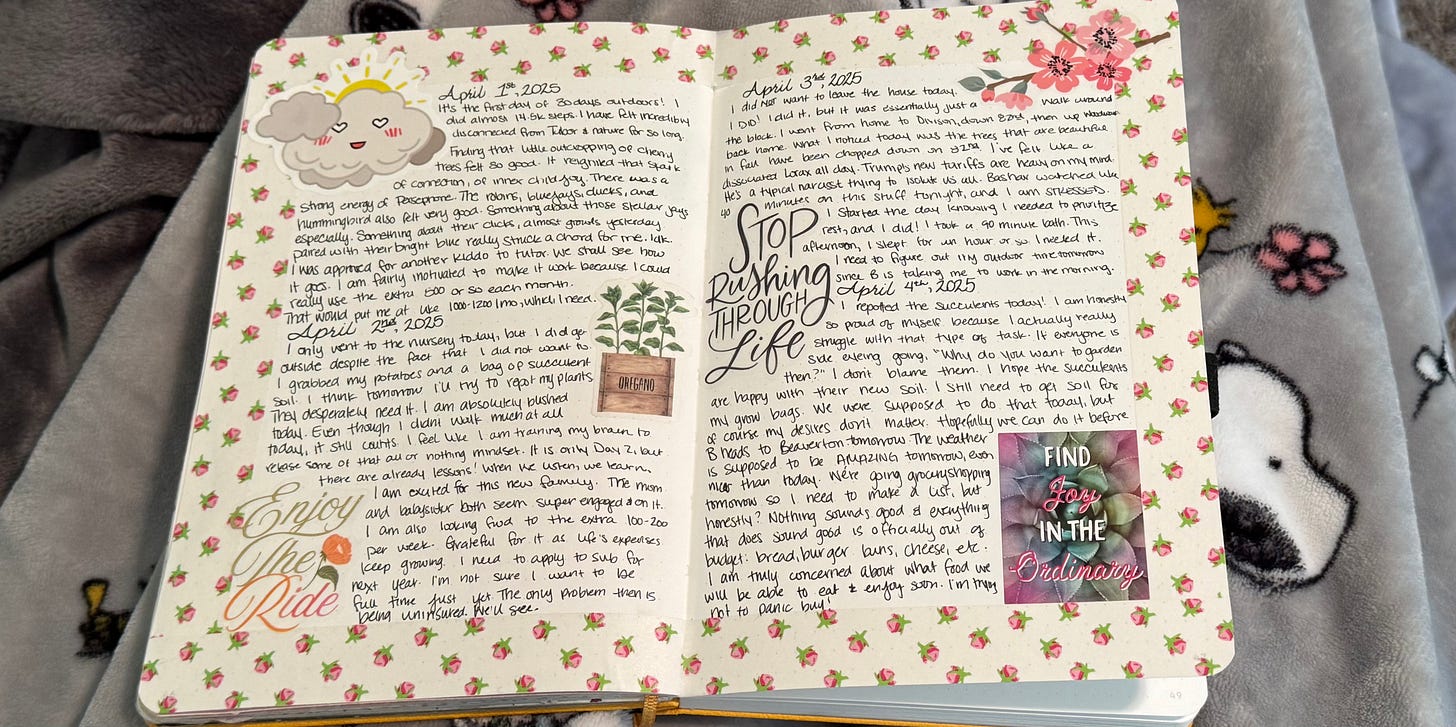 April 1st, 2025
It's the first day of 30 days outdoors! I
did almost 14.5k steps. I have felt incredibly
disconnected from & nature for so long.
Finding that little outcropping of cherry
trees felt so good. It reignited that spark
of connection, of inner child joy. There was a
strong energy of Persephone. The robins, bluejays, ducks, and
hummingbird also felt very good. Something about those stellar jays
especially. Something about their clicks, almost growls yesterday
paired with their bright blue really struck a chord for me. Idk.
I was approved for another kiddo to tutor. We shall see how
it goes. I am fairly motivated to make it work because I could
really use the extra 500 or so each month.
That would put me at like 1000-1200/mo, which I need.
April 2nd, 2025
I only went to the nursery today, but I did go
outside despite the fact that I did not want to.
I grabbed my potatoes and a bag of succulent
soil. I think tomorrow I'll try to repot my plants
They desperately need it. I am absolutely bushed
today. Even though I didn't walk much at all
today, it still counts. I feel like I am training my brain to
release some of that all or nothing mindset. It is only Day 2, but
there are already lessons! When we listen, we learn.
I am excited for this new family. The mom
and babysitter both seem super engaged & on it.
I am also looking fwd to the extra 100-200
per week. Grateful for it as life's expenses
keep growing. I need to apply to sub for
next year. I'm not sure I want to be
full time just yet. The only problem then is
being uninsured. We'll see.
Enjoy
The
Ride
OREGANO
April 3rd, 2025
I did not want to leave the house today.
I DID! I did it, but it was essentially just a walk around
the block. I went from home to Division, down 82nd, then up
back home. What I noticed today was the trees that are beautiful
in fall have been chopped down on 82nd. I've felt like a
dissociated Lorax all day. Trump's new tariffs are heavy on my mind.
He's a typical narcisst trying to isolate us all. Bashar watched like
40 minutes on this stuff tonight, and I am STRESSED.
I started the day knowing I needed to prioritize
rest, and I did! I took a 90 minute bath. This
afternoon, I slept for an hour or so. I needed it.
I need to figure out my outdoor time tomorrow
since B is taking me to work in the morning.
STOP
Rushing
THROUGH
Life
April 4th, 2025
I repotted the succulents today! I am honestly
so proud of myself because I actually really
struggle with that type of task. If everyone is
side eyeing going, "Why do you want to garden
then?" I don't blame them. I hope the succulents
are happy with their new soil. I still need to get soil for
my grow bags. We were supposed to do that today, but
of course my desires don't matter. Hopefully we can do it before
B heads to Beaverton tomorrow. The weather
is supposed to be AMAZING tomorrow, even
nicer than today. We're going grocery shopping
tomorrow so I need to make a list, but
honestly? Nothing sounds good & everything
that does sound good is officially out of
budget: bread, burger buns, cheese, etc.
I am truly concerned about what food we
will be able to eat & enjoy soon. I'm trying
not to panic buy!
FIND
Joy
IN THE
Ordinary
49